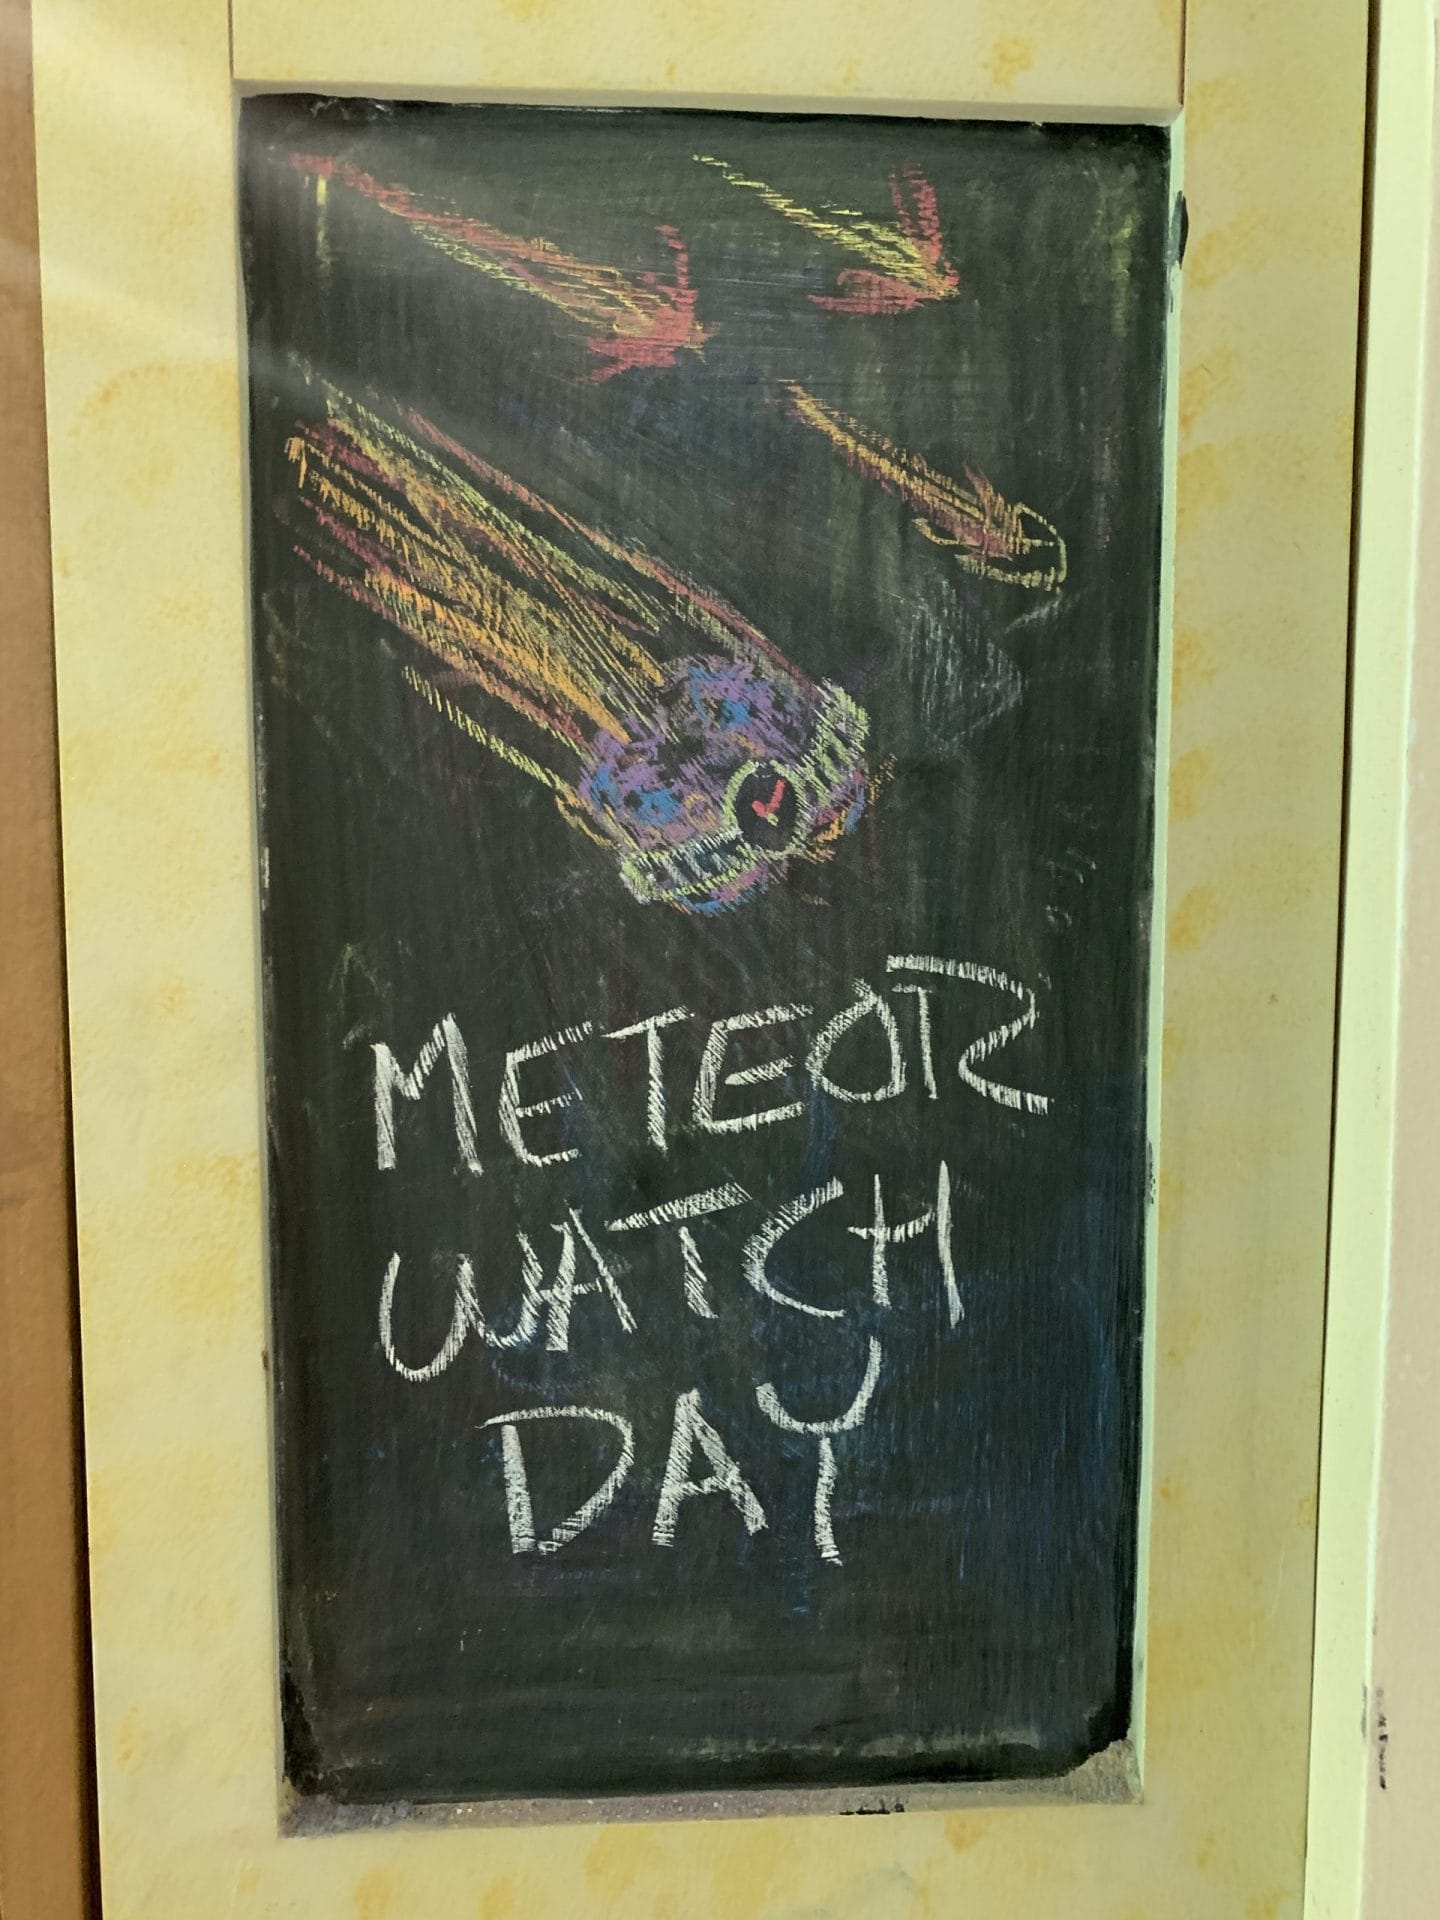 METEOR
WATCH
DAY